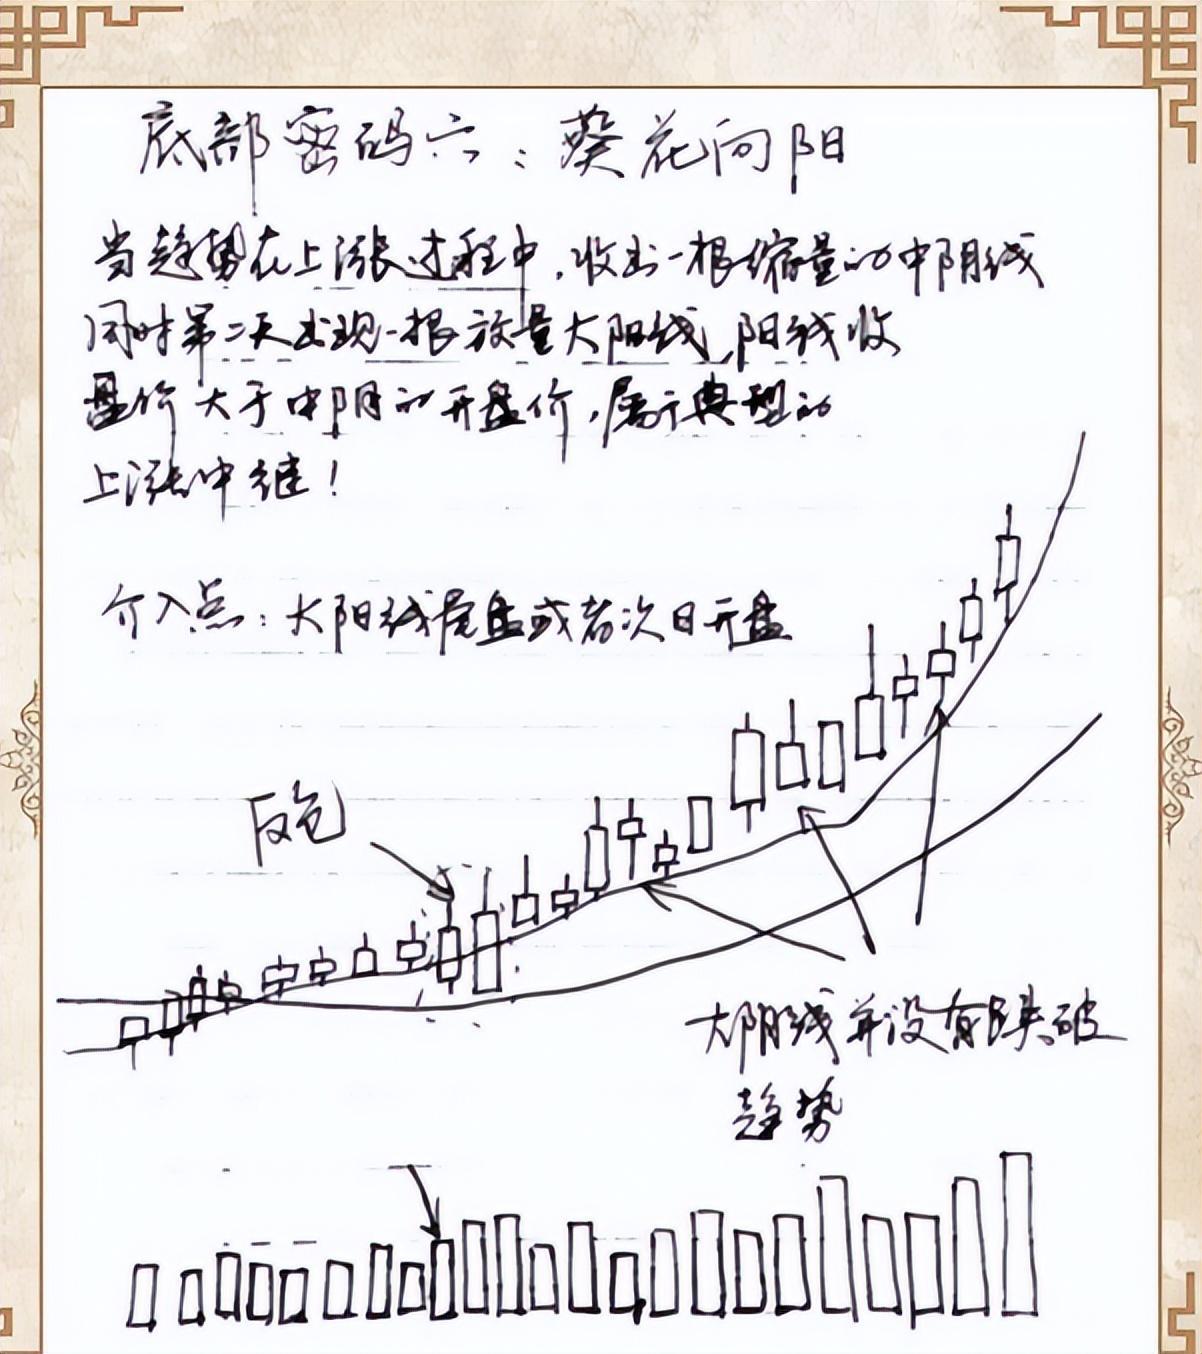 底部密码六：葵花向阳
当趋势在上涨过程中，收出一根缩量的中阴线
同时第二天出现一根放量大阳线，阳线收
盘价大于中阴的开盘价，属于典型的
上涨中继！
介入点：大阳线尾盘或者次日开盘
反包
大阴线并没有跌破
趋势